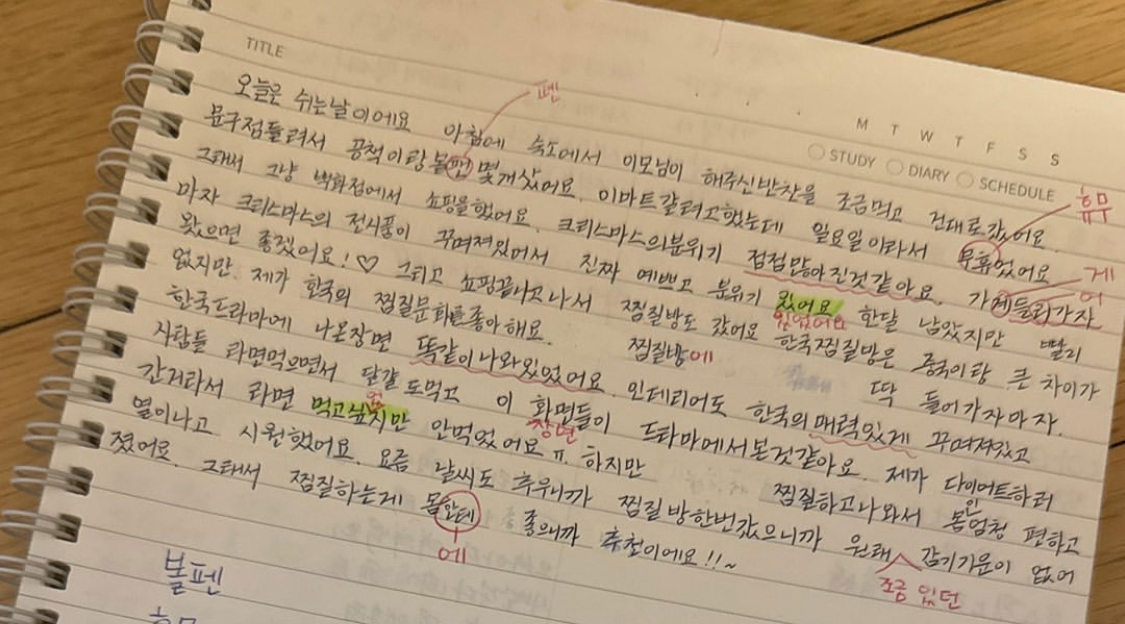 TITLE
M T W T F S S
STUDY DIARY SCHEDULE
펜
오늘은 쉬는날이에요 아침에 숙소에서 이모님이 해주신반찬을 조금먹고 건대로갔어요.
문구점들려서 공책이랑볼팬 몇개샀어요. 이마트갈려고했는데 일요일이라서 무휴었어요
휴무
그래써 그냥 박화점에서 쇼핑을했어요. 크리스마스의분위기 점점많아진것같아요. 가메들러가자
게
어
마자 크리스마스의 전시품이 꾸며져있어서 진짜 예쁘고 분위기 있어요 한달 남았지만 빨리
있었어요
왔으면 좋겠어요! ♡ 그리고 쇼핑끝나고나서 찜질방도 갔어요 한국찜질방은 중국이랑 큰 차이가
없지만 제가 한국의 찜질문화를좋아해요. 찜질방에 딱 들어가자마자.
한국드라마에 나온장면 똑같이나와있었어요 인테리어도 한국의매력있게 꾸며져있고
사람들 라면먹으면서 달걀도먹고 이 화면들이 드라마에서본것같아요. 제가 다이어트하러
장면
간거라서 라면 먹고싶지만 안먹었어요ㅠ. 하지만 찜질하고나와서 몸엄청 편하고
었
이
열이나고 시원했어요. 요즘 날씨도 추우니까 찜질방한번갔으니까 원래 감기기운이 없어
조금 있던
졌어요. 그래서 찜질하는게 몸오테 좋으니까 추천이에요!!~
에
볼펜